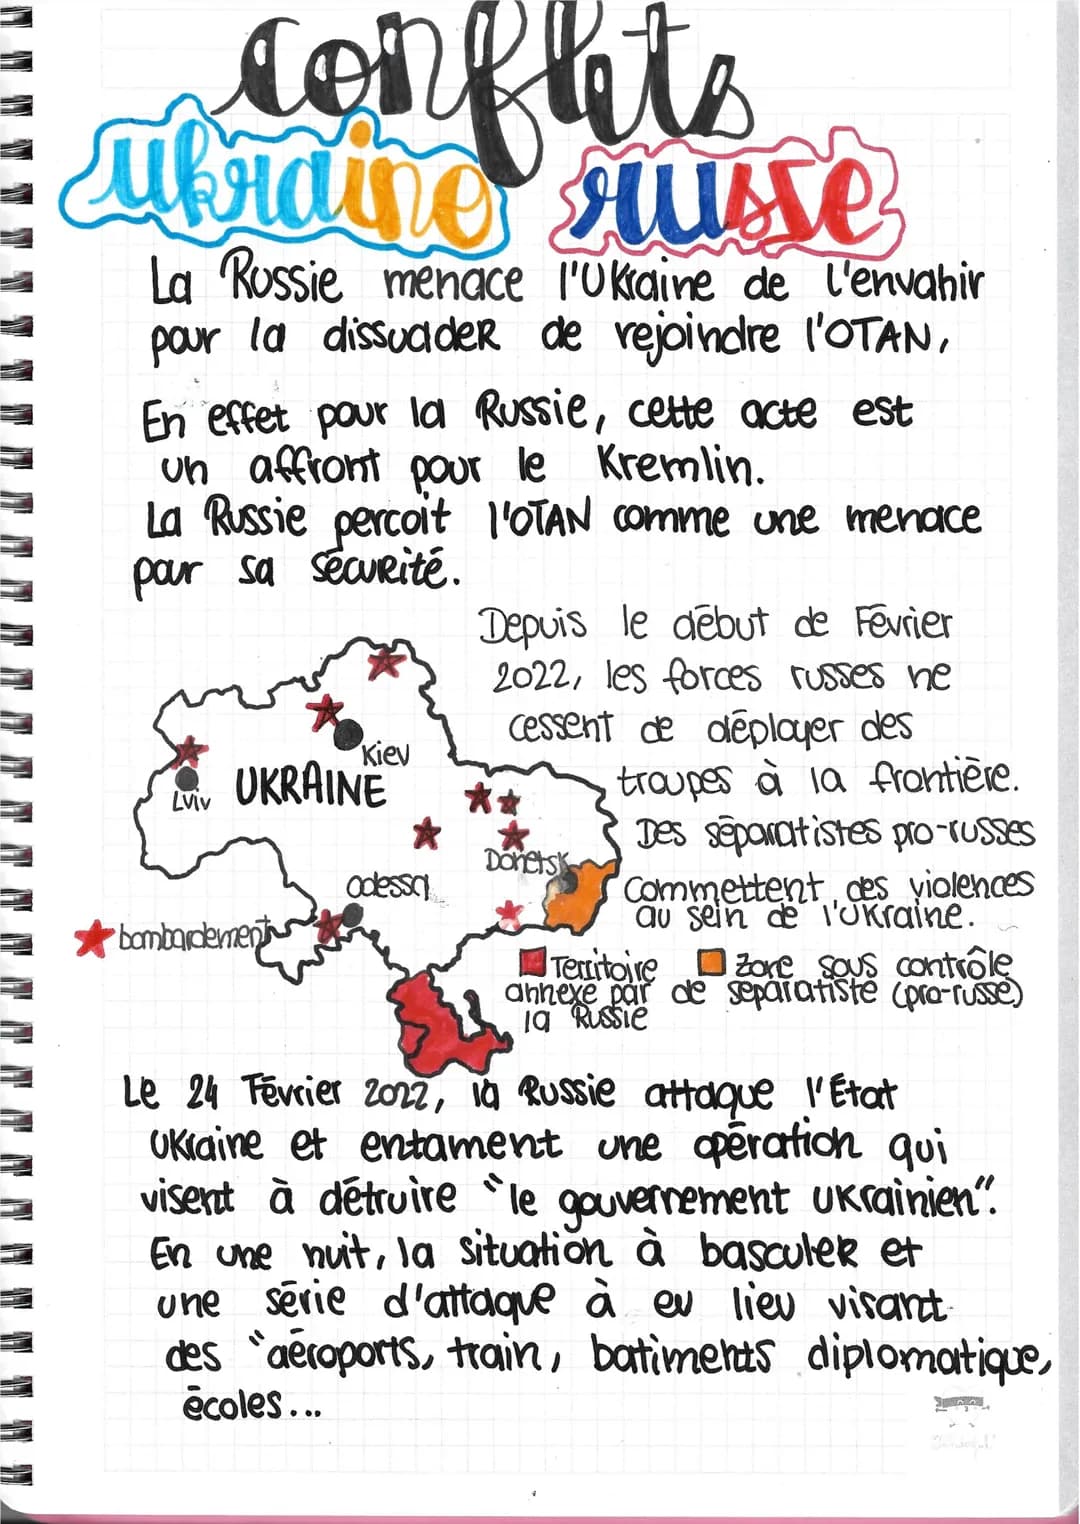 conflits
ukraino russe
La Russie menace l'Ukraine de l'envahir
pour la dissuader de rejoindre l'OTAN,
En effet pour la Russie, cette acte est
un affront pour le Kremlin.
La Russie percoit l'OTAN comme une menace
pour sa sécurité.
Depuis le début de Février
2022, les forces russes ne
cessent de déployer des
troupes à la frontière.
Des séparatistes pro-russes
commettent des violences
au sein de l'Ukraine.
Kiev
Lviv
UKRAINE
Donetsk
odessa
bombardement
Territoire
annexé par
la Russie
Zone sous contrôle
de séparatiste (pro-russe)
Le 24 Février 2022, la Russie attaque l'État
Ukraine et entament une opération qui
visent à détruire "le gouvernement ukrainien".
En une nuit, la situation à basculer et
une série d'attaque à eu lieu visant
des "aéroports, train, batiments diplomatique,
écoles...